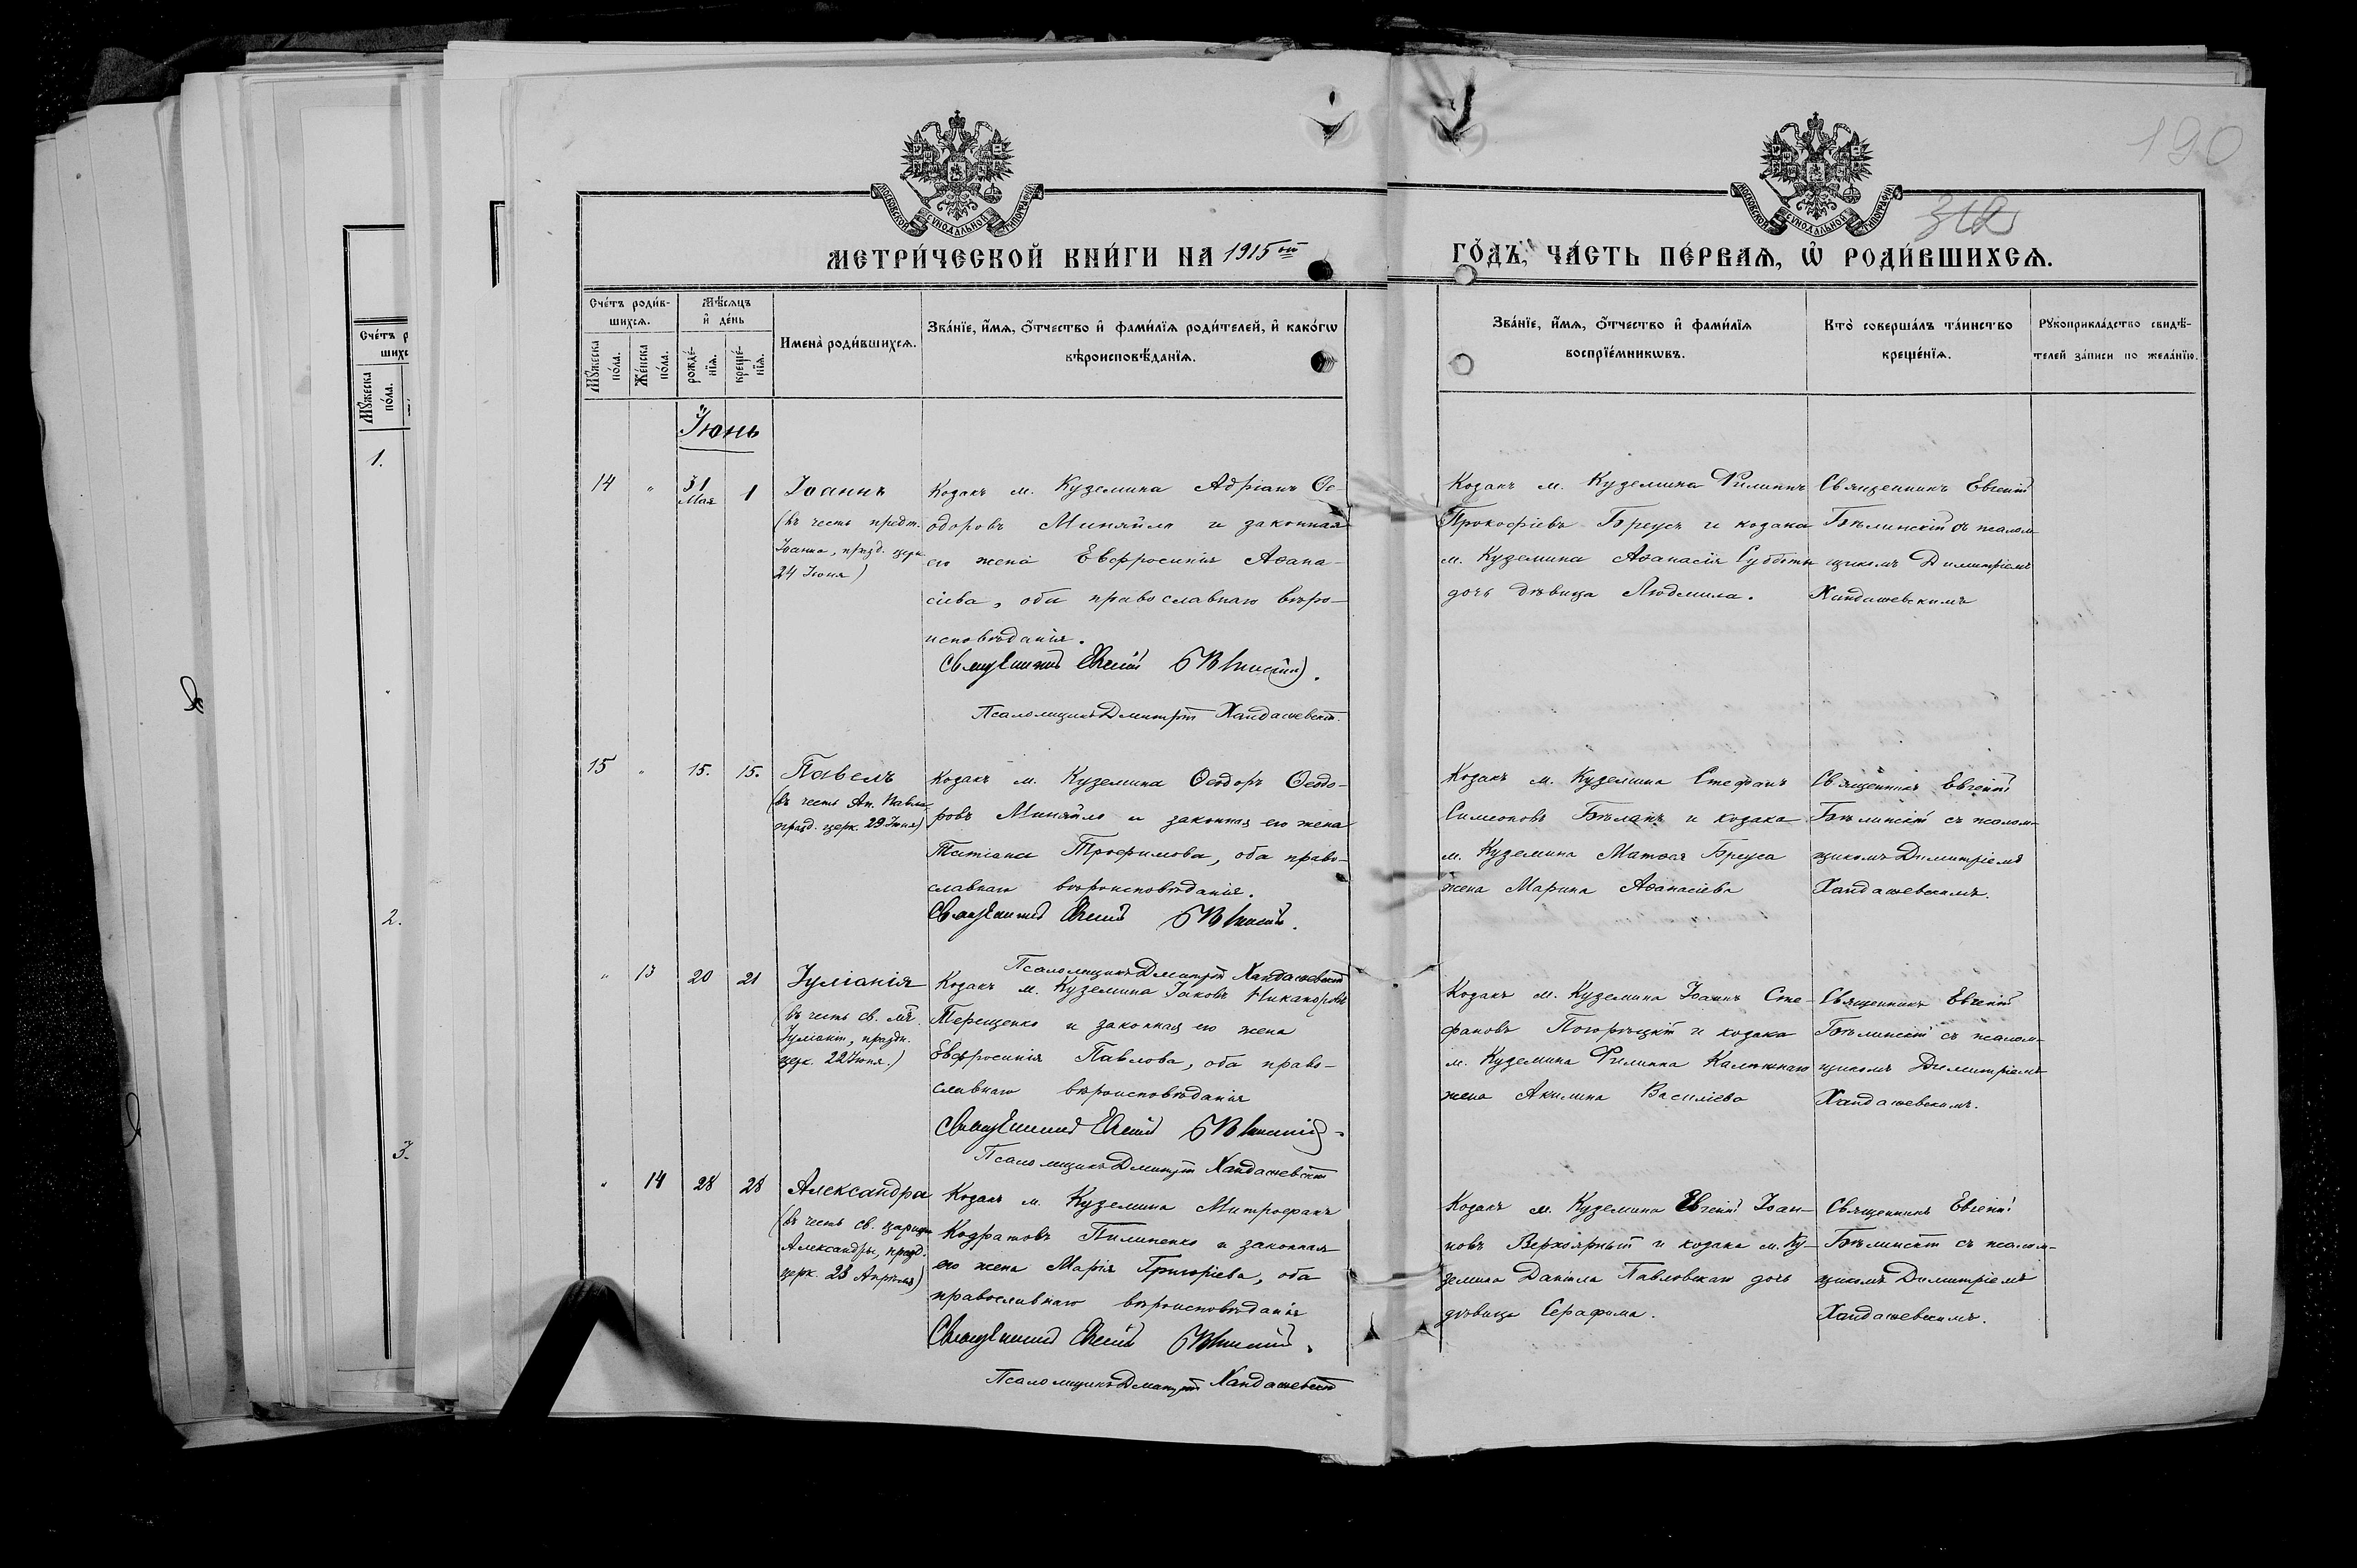 190
312
МОСКОВСКОЙ СѴНОДАЛЬНОЙ ТИПОГРАФІИ
МОСКОВСКОЙ СѴНОДАЛЬНОЙ ТИПОГРАФІИ
МЕТРИ́ЧЕСКОЙ КНИ́ГИ НА 1915ый
ГО́ДЪ, ЧА́СТЬ ПЕ́РВАѦ, Ѡ҆ РОДИ́ВШИХСѦ.
Сче́тъ роди́в-
шихсѧ.
Мꙋ́жеска по́ла.
Же́нска по́ла.
Мѣ́сѧцъ
и҆ де́нь
рожде́-
нїѧ.
креще́-
нїѧ.
Имена̀ роди́вшихсѧ.
Зва́нїе, и҆́мѧ, ѻ҆́тчество и҆ фами́лїѧ роди́телей, и҆ како́гѡ
вѣроисповѣ́данїѧ.
Зва́нїе, и҆́мѧ, ѻ҆́тчество и҆ фами́лїѧ
воспрїе́мникѡвъ.
Кто̀ соверша́лъ та́инство
креще́нїѧ.
Рꙋкоприкла́дство свидѣ́-
телей за́писи по жела́нїю.
Сче́тъ р
шихс
Мꙋ́жеска
по́ла.
1.
2.
3.
Іюнь
14 " 31 Мая 1
Іоаннъ
(въ честь предт.
Іоанна, празд. церк.
24 Іюня)
Козакъ м. Куземина Адріанъ Ѳе-
одоровъ Миняйло и законная
его жена Евфросинія Аѳана-
сіева, оба православнаго вѣро-
исповѣданія.
Священникъ Евгеній Бѣлинскій.
Псаломщикъ Димитрій Хандажевскій.
Козакъ м. Куземина Филиппъ
Прокофіевъ Бреусъ и козака
м. Куземина Аѳанасія Субботы
дочь дѣвица Людмила.
Священникъ Евгеній
Бѣлинскій съ псалом-
щикомъ Димитріемъ
Хандажевскимъ
15 " 15. 15.
Павелъ
(въ честь Ап. Павла
празд. церк. 29 Іюня)
Козакъ м. Куземина Ѳеодоръ Ѳеодо-
ровъ Миняйло и законная его жена
Татіана Трофимова, оба право-
славнаго вѣроисповѣданія.
Священникъ Евгеній Бѣлинскій.
Псаломщикъ Димитрій Хандажевскій
Козакъ м. Куземина Стефанъ
Симеоновъ Бѣланъ и козака
м. Куземина Матѳея Бреуса
жена Марина Аѳанасіева
Священникъ Евгеній
Бѣлинскій съ псалом-
щикомъ Димитріемъ
Хандажевскимъ.
" 13 20 21
Іуліанія
(въ честь св. мч.
Іуліаніи, праздн.
церк. 22 Іюня.)
Козакъ м. Куземина Іаковъ Никаноровъ
Терещенко и законная его жена
Евфросинія Павлова, оба право-
славнаго вѣроисповѣданія
Священникъ Евгеній Бѣлинскій.
Псаломщикъ Димитрій Хандажевскій
Козакъ м. Куземина Іоаннъ Сте-
фановъ Погорѣцкій и козака
м. Куземина Филиппа
жена Акилина Василіева
Священникъ Евгеній
Бѣлинскій съ псалом-
щикомъ Димитріемъ
Хандажевскимъ.
" 14 28 28
Александра
(въ честь св. царицы
Александры, празд.
церк. 23 Апрѣля)
Козакъ м. Куземина Митрофанъ
Кодратовъ Пилипенко и законная
его жена Марія Григоріева, оба
православнаго вѣроисповѣданія
Священникъ Евгеній Бѣлинскій.
Псаломщикъ Димитрій Хандажевскій
Козакъ м. Куземина Евгеній Іоан-
новъ Верхоярный и козака м. Ку-
земина Даніила Павловскаго дочь
дѣвица Серафима.
Священникъ Евгеній
Бѣлинскій съ псалом-
щикомъ Димитріемъ
Хандажевскимъ.